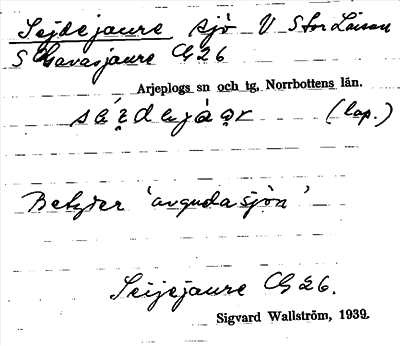 Sejdejaure sjö V Stor Laisan
S Gavasjaure G 26
Arjeplogs sn och tg, Norrbottens län.
(lap.)
Betyder 'avgudasjön'
Seijejaure G 26.
Sigvard Wallström, 1939.